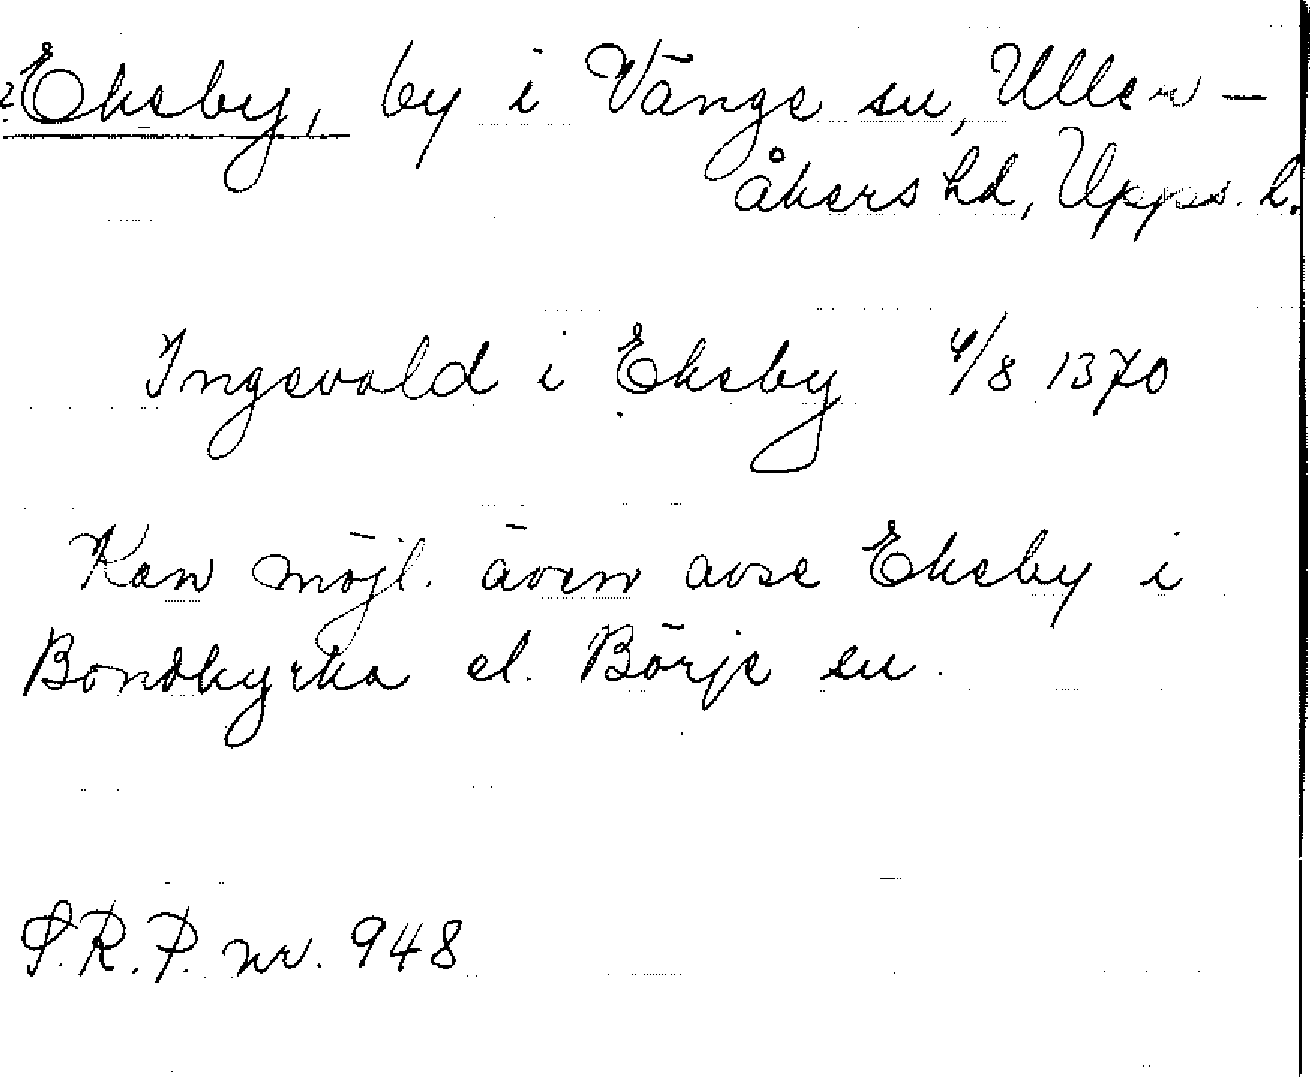 ?Ekeby, by i Vänge sn, Uller-
åkers hd, Upps. l.
Ingevald i Ekeby 4/8 1370
Kan möjl. även avse Ekeby i
Bondkyrka el. Börje sn.
S.R.P. nr. 948